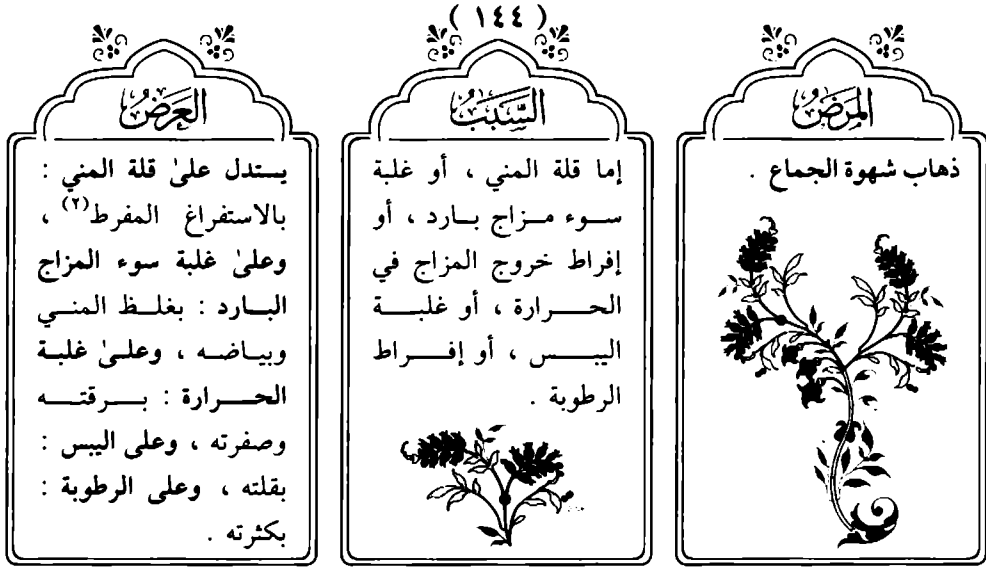 ( ١٤٤ )
المَرَضُ
ذهاب شهوة الجماع .
السَّبَبُ
إما قلة المني ، أو غلبة
سوء مزاج بارد ، أو
إفراط خروج المزاج في
الحرارة ، أو غلبة
اليبس ، أو إفراط
الرطوبة .
العَرَضُ
يستدل علىٰ قلة المني :
بالاستفراغ المفرط(٢) ،
وعلىٰ غلبة سوء المزاج
البارد : بغلظ المني
وبياضه ، وعلىٰ غلبة
الحرارة : برقته
وصفرته ، وعلى اليبس :
بقلته ، وعلى الرطوبة :
بكثرته .